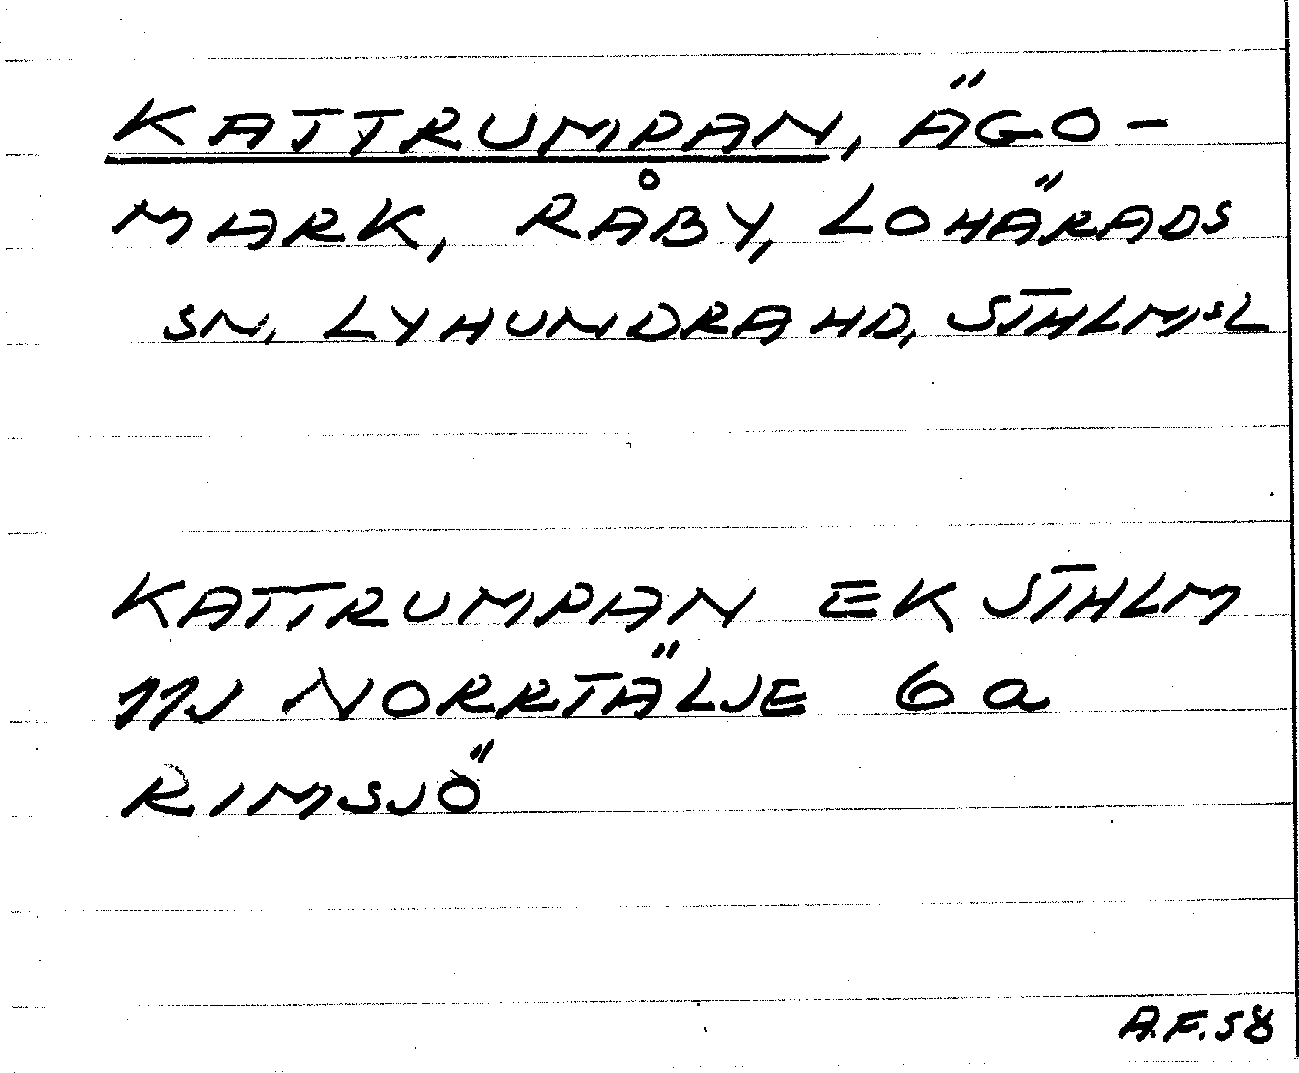 KATTRUMPAN, ÄGO-
MARK, RÅBY, LOHÄRADS
SN, LYHUNDRA HD, STHLMSL
KATTRUMPAN EK STHLM
11J NORRTÄLJE 6 a
RIMSJÖ
A.F. 58